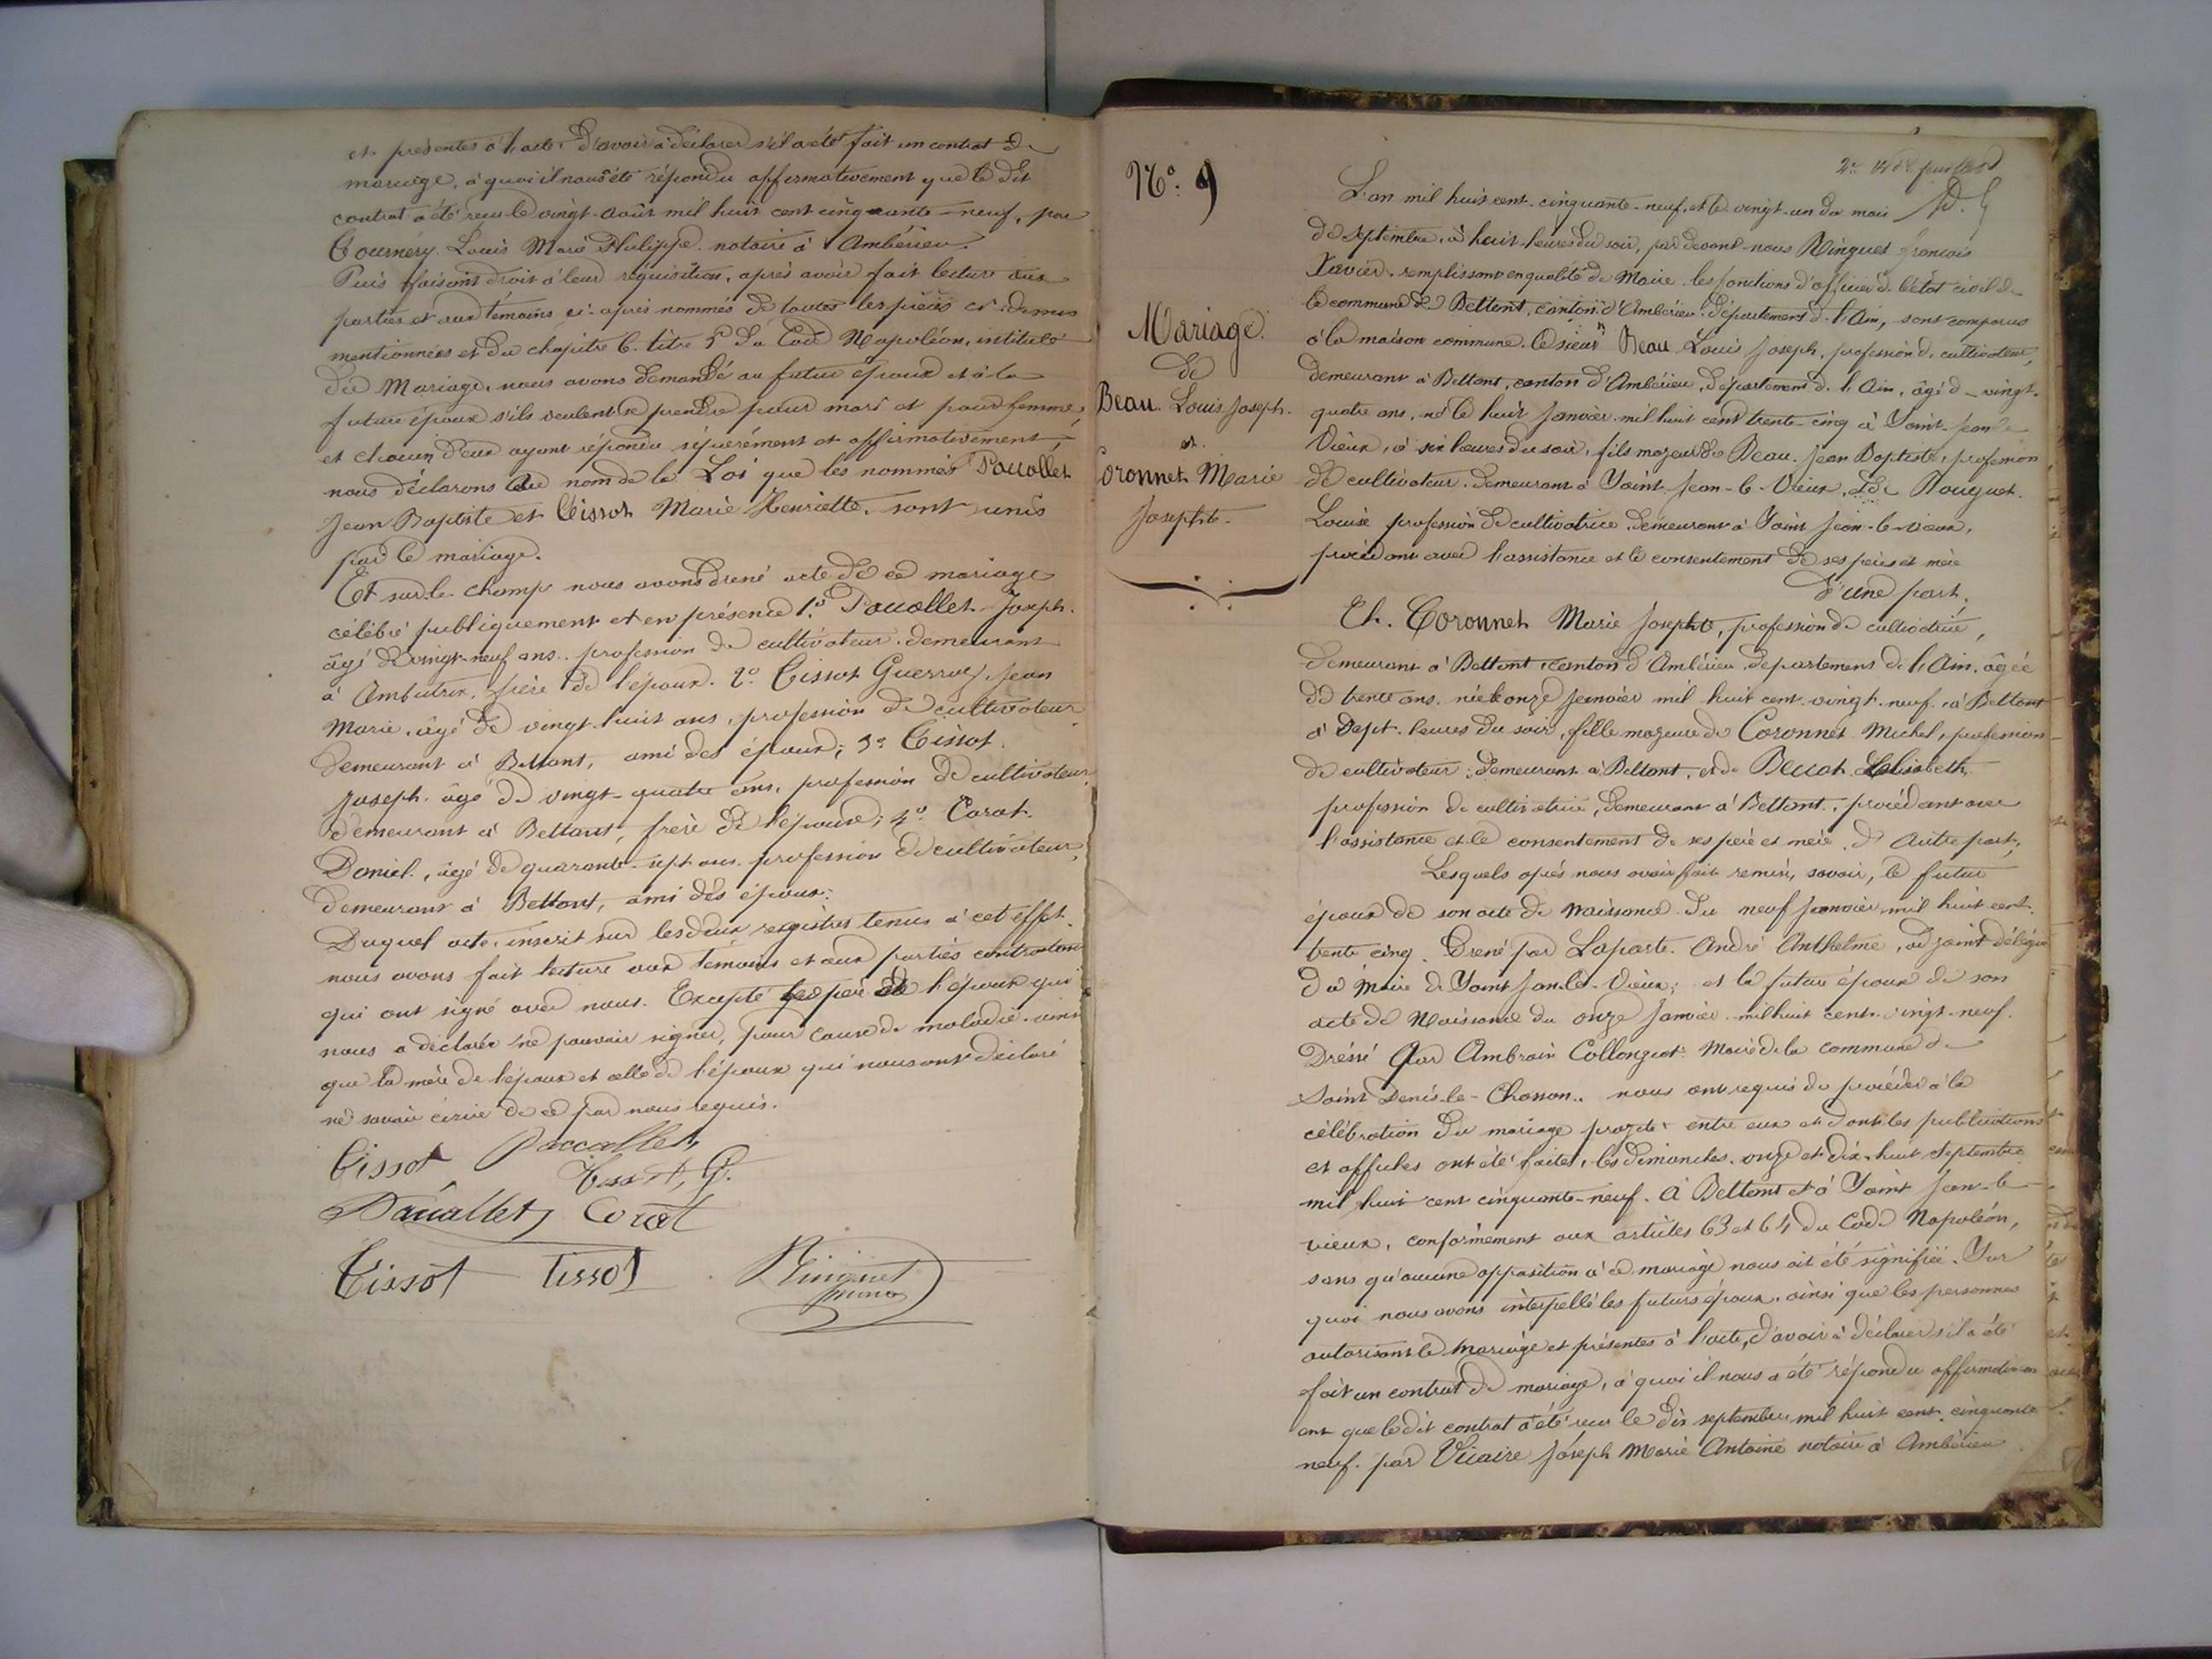 et présentes à l'acte, d'avoir à déclarer s'il a été fait un contrat de
mariage, à quoi il nous été répondu affirmativement que le dit
contrat a été reçu le vingt août mil huit cent cinquante-neuf, par
Tournéry Louis Marie Philippe notaire à Ambérieu.
Puis faisant droit à leur réquisition, après avoir fait lecture aux
parties et aux témoins ci-après nommés de toutes les pièces ci-dessus
mentionnées et du chapitre 6. titre 5 du Code Napoléon, intitulé
du Mariage, nous avons demandé au futur époux et à la
future épouse s'ils veulent se prendre pour mari et pour femme,
et chacun d'eux ayant répondu séparément et affirmativement,
nous déclarons Au nom de la Loi que les nommés Paccallet
Jean Baptiste et Tissot Marie Henriette sont unis
par le mariage.
Et sur-le-champ nous avons dressé acte de ce mariage
célébré publiquement et en présence 1.º Paccallet Joseph.
âgé de vingt-neuf ans, profession de cultivateur demeurant
à Ambutrix, frère de l'époux. 2.º Tissot Guerraz Jean
Marie, âgé de vingt-huit ans, profession de cultivateur
demeurant à Bettant, ami des époux; 3º Tissot
Joseph. âgé de vingt-quatre ans, profession de cultivateur
demeurant à Bettant, frère de l'épouse; 4º. Corat
Daniel, âgé de quarante-sept ans profession de cultivateur,
demeurant à Bettant, ami des époux.
Duquel acte, inscrit sur les deux registres tenus à cet effet
nous avons fait lecture aux témoins et aux parties contractan
qui ont signé avec nous. Excepté le père de l'époux qui
nous a déclaré ne pouvoir signer, pour cause de maladie. ainsi
que la mère de l'époux et celle de l'épouse qui nous ont déclaré
ne savoir écrire de ce par nous requis.
Tissot Paccallet
Tissot, G.
Paccallet Corat
Tissot Tissot Ringuet
maire
Nº. 9
Mariage.
de
Beau Louis Joseph.
et
Coronnet Marie
Josephte
L'an mil huit cent cinquante-neuf, et le vingt-un du mois
de septembre, à huit heures du soir, par devant nous Ringuet François
Xavier remplissant en qualité de Maire les fonctions d'officier de l'état civil de
la commune de Bettant, canton d'Ambérieu, département de l'Ain, sont comparus
à la maison commune. Le sieur Beau Louis Joseph, profession de cultivateur,
demeurant à Bettant, canton d'Ambérieu, département de l'Ain, âgé de vingt-
quatre ans, né le huit Janvier mil huit cent trente-cinq à Saint-Jean-le
Vieux, à six heures du soir, fils majeur de Beau Jean Baptiste, profession
de cultivateur demeurant à Saint Jean-le-Vieux, & de Douguet
Louise profession de cultivatrice demeurant à Saint Jean-le-vieux,
procédant avec l'assistance et le consentement de ses père et mère
d'une part,
Et. Coronnet Marie Josephte, profession de cultivatrice,
demeurant à Bettant, canton d'Ambérieu, département de l'Ain, âgée
de trente ans, née le onze Janvier mil huit cent vingt-neuf, à Bettant
à sept heures du soir, fille majeure de Coronnet Michel, profession
de cultivateur, demeurant à Bettant, et de Elisabeth,
profession de cultivatrice, demeurant à Bettant, procédant avec
l'assistance et le consentement de ses père et mère. d'Autre part,
Lesquels après nous avoir fait remise, savoir, le futur
époux de son acte de naissance du neuf Janvier mil huit cent
trente cinq. Dressé par Laparte André Anthelme, adjoint délégué
du Maire de Saint Jean-le-Vieux; et la future épouse de son
acte de Naissance du onze Janvier mil huit cent vingt-neuf.
Dréssé Par Ambroise Collonget Maire de la commune de
Saint Denis-le-Chosson. nous ont requis de procéder à la
célébration du mariage projeté entre eux et dont les publications
et affiches ont été faites, les dimanches onze et dix-huit Septembre
mil huit cent cinquante-neuf. à Bettant et à Saint Jean-le
vieux, conformément aux articles 63 et 64 du Code Napoléon,
sans qu'aucune opposition à ce mariage nous ait été signifiée. Sur
quoi nous avons interpellé les futurs époux, ainsi que les personnes
autorisant le mariage et présentes à l'acte, d'avoir à déclarer s'il a été
fait un contrat de mariage, à quoi il nous a été répondu affirmativem
ent que le dit contrat a été reçu le dix septembre mil huit cent cinquante
neuf. par Vicaire Joseph Marie Antoine notaire à Ambérieu